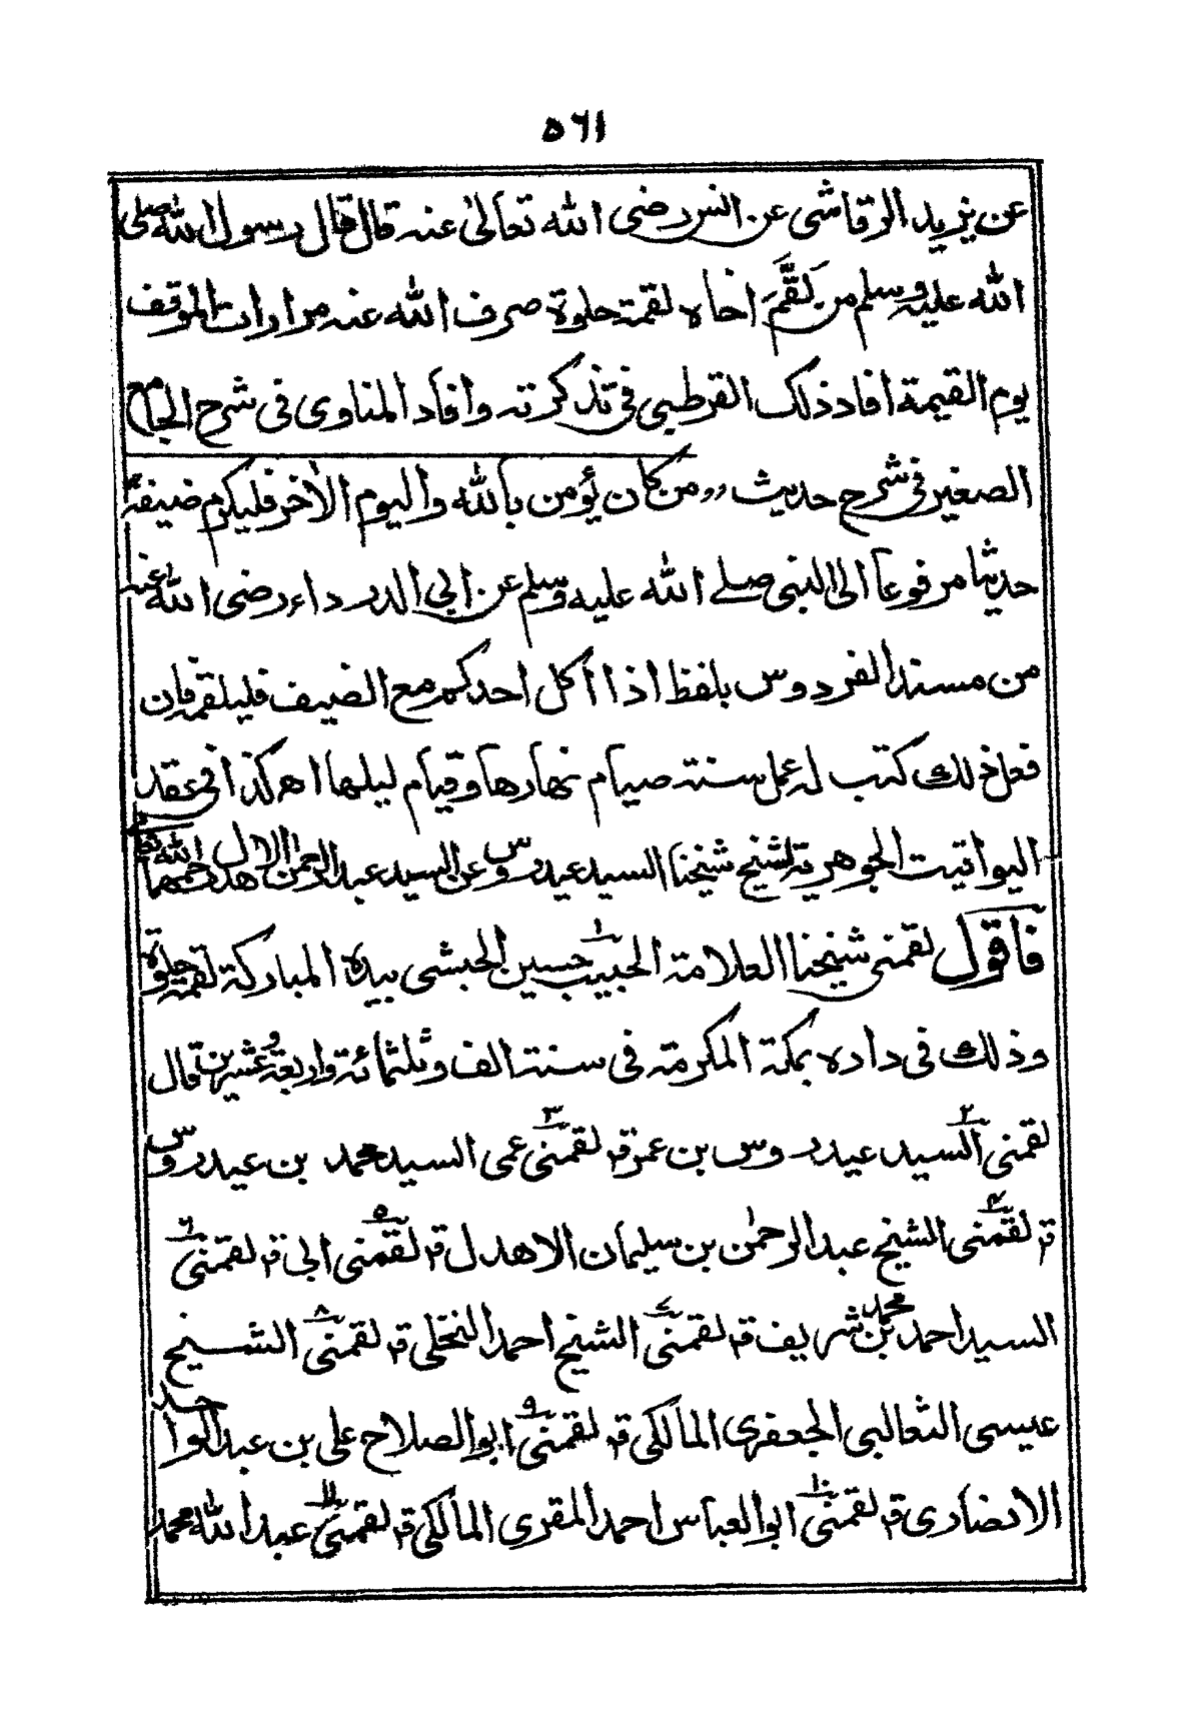 ٥٦١
عن يزيد الرقاشى عن انس رضى الله تعالىٰ عنه قال قال رسول الله صلى
الله عليه وسلم من لَقَّمَ اخاه لقمة حلوة صرف الله عنه مرارات الموقف
يوم القيمة افاد ذلك القرطبى فى تذكرته وافاد المناوى فى شرح الجامع
الصغير فى شرح حديث ,, من كان يؤمن بالله واليوم الأخر فليكرم ضيفه ،،
حديثا مرفوعا الى النبى صلے الله عليه وسلم عن ابى الدرداء رضى الله عنه
من مسند الفردوس بلفظ اذا أكل احدكم مع الضيف فليلقمه فان
فعل ذلك كتب له عمل سنة صيام نهارها وقيام ليلها اه كذا فى عقد
اليواقيت الجوهرية لشيخ شيخنا السيد عيدروس عن السيد عبدالرحمن الاهدل رحمهما الله تعالى
فاقول لقمنى شيخنا العلامة الحبيب ١ حسين الحبشى بيده المباركة لقمة حلوة
وذلك فى داره بمكة المكرمة فى سنة الف وثلثمائة واربعة وعشرين قال
لقمنى ٢ السيد عيدروس بن عمر قم لقمنى ٣ عمى السيد محمد بن عيدروس
قم لقمنى ٤ الشيخ عبدالرحمٰن بن سليمان الاهدل قم لقمنى ٥ ابى قم لقمنى ٦
السيد احمد بن محمد شريف قم لقمنى ٧ الشيخ احمد النخلى قم لقمنى ٨ الشيخ
عيسى الثعالبى الجعفرى المالكى قم لقمنى ٩ ابو الصلاح على بن عبد الواحد
الانصارى قم لقمنى ١٠ ابو العباس احمد المقرى المالكى قم لقمنى ١١ عبد الله محمد